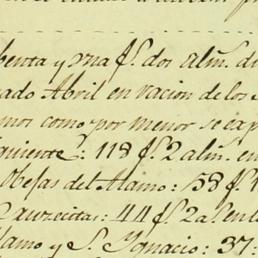 benta y una f.s dos alm.s di
ado Abril en racion de los
mos como por menor se exp
guiente: 118 f.s 2 alm.s en
Obejas del Alamo: 58 f.s
Cauzecitas: 44 f.s 2 al.s en l
lamo y S. Ygnacio: 37: